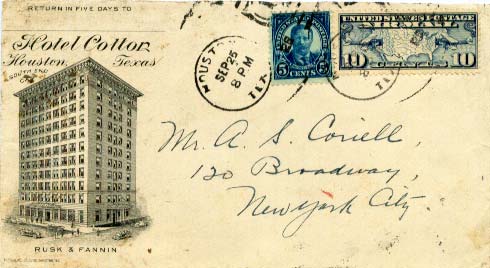 RETURN IN FIVE DAYS TO
Hotel Cotton
Houston, Texas
HOUSTON
SEP 25
8 PM
TEX.
5 CENTS 5
UNITED STATES POSTAGE
AIR MAIL
10 10
Mr. A. S. Coriell,
120 Broadway,
New York City.
RUSK & FANNIN